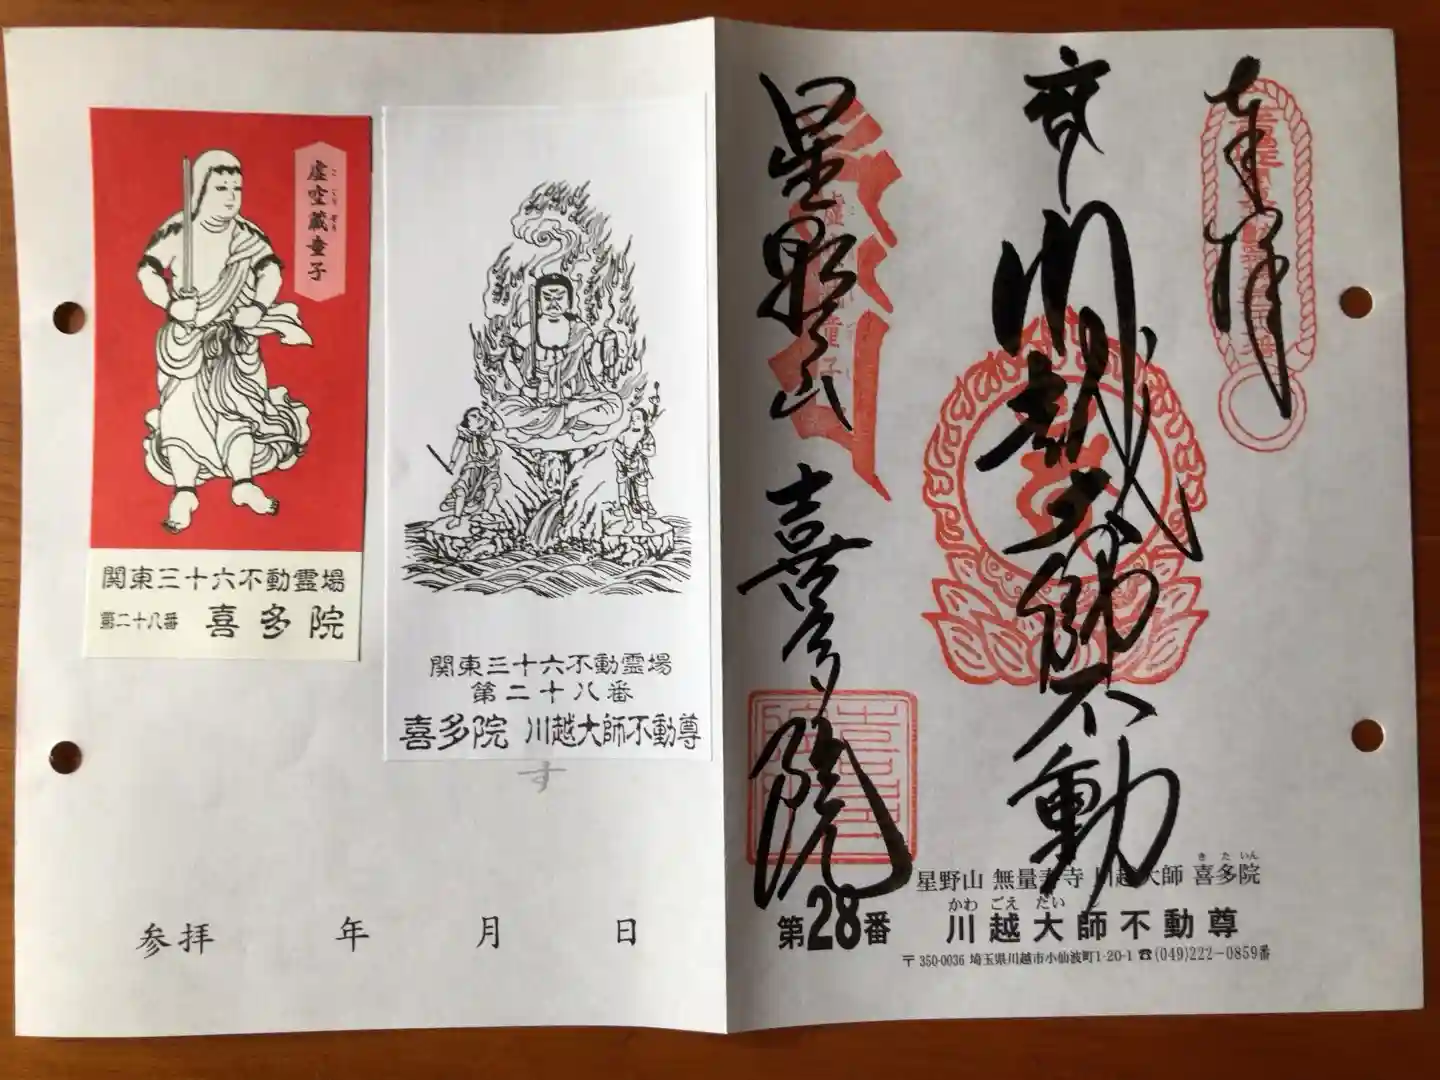 虚空蔵童子
こくうぞう
関東三十六不動霊場
第二十八番 喜多院
関東三十六不動霊場
第二十八番
喜多院 川越大師不動尊
す
参拝 年 月 日
奉拝
川越大師不動
星野山 喜多院
きたいん
星野山 無量寿寺 川越大師 喜多院
かわ ごえ だい
第28番 川越大師不動尊
〒350-0036 埼玉県川越市小仙波町1-20-1 ☎(049)222-0859番